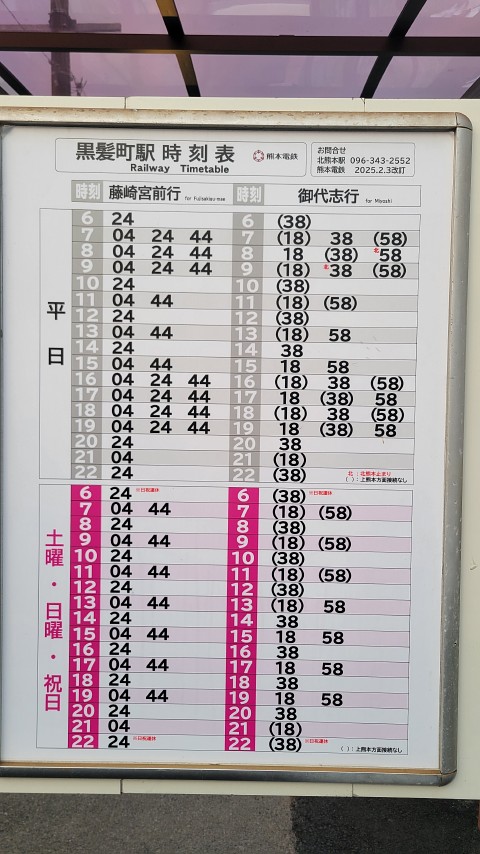 黒髪町駅 時刻表
Railway Timetable
熊本電鉄
お問合せ
北熊本駅 096-343-2552
熊本電鉄 2025.2.3改訂
時刻 藤崎宮前行 for Fujisakigu-mae 時刻 御代志行 for Miyoshi
平日
6 24 6 (38)
7 04 24 44 7 (18) 38 (58)
8 04 24 44 8 18 (38) 北58
9 04 24 44 9 (18) 北38 (58)
10 24 10 (38)
11 04 44 11 (18) (58)
12 24 12 (38)
13 04 44 13 (18) 58
14 24 14 38
15 04 44 15 18 58
16 04 24 44 16 (18) 38 (58)
17 04 24 44 17 18 (38) 58
18 04 24 44 18 (18) 38 (58)
19 04 24 44 19 18 (38) 58
20 24 20 38
21 04 21 (18)
22 24 22 (38)
北:北熊本止まり
( ):上熊本方面接続なし
土曜・日曜・祝日
6 24 ※日祝運休 6 (38) ※日祝運休
7 04 44 7 (18) (58)
8 24 8 (38)
9 04 44 9 (18) (58)
10 24 10 (38)
11 04 44 11 (18) (58)
12 24 12 (38)
13 04 44 13 (18) 58
14 24 14 38
15 04 44 15 18 58
16 24 16 38
17 04 44 17 18 58
18 24 18 38
19 04 44 19 18 58
20 24 20 38
21 04 21 (18)
22 24 ※日祝運休 22 (38) ※日祝運休
( ):上熊本方面接続なし